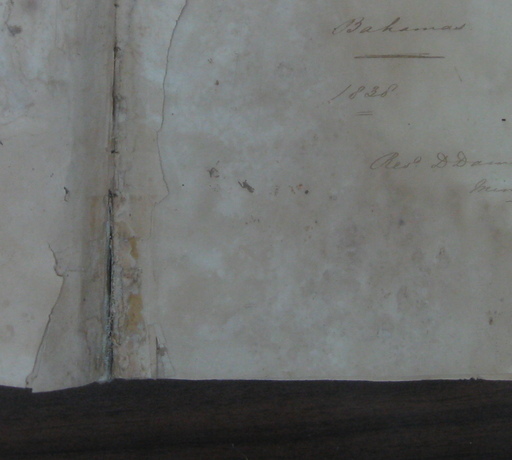 Bahamas
1838
Revd D Dam